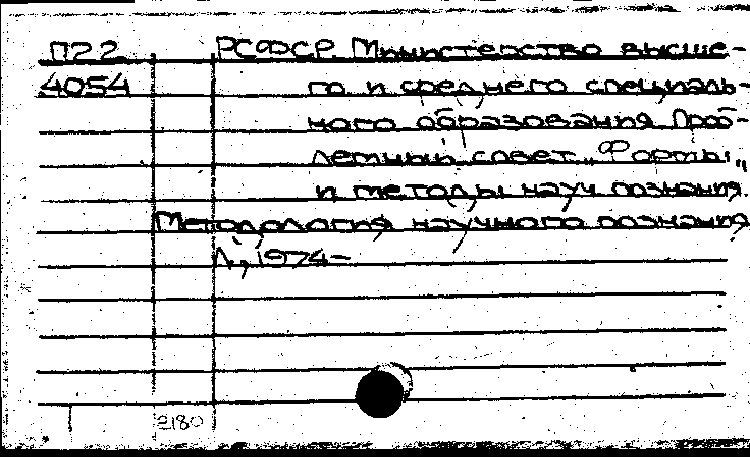 П22 РСФСР. Министерство высше-
4054 го и среднего специаль-
ного образования Проб-
лемный совет „Формы
и методы науч познания.
Методология научного познания
Л., 1974-
2180